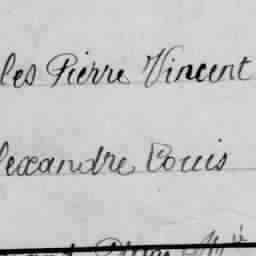 les Pierre Vincent
lexandre Louis